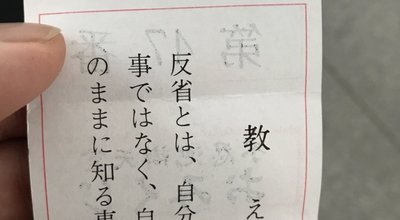 教え
反省とは、自分
事ではなく、自
のままに知る事
第47番